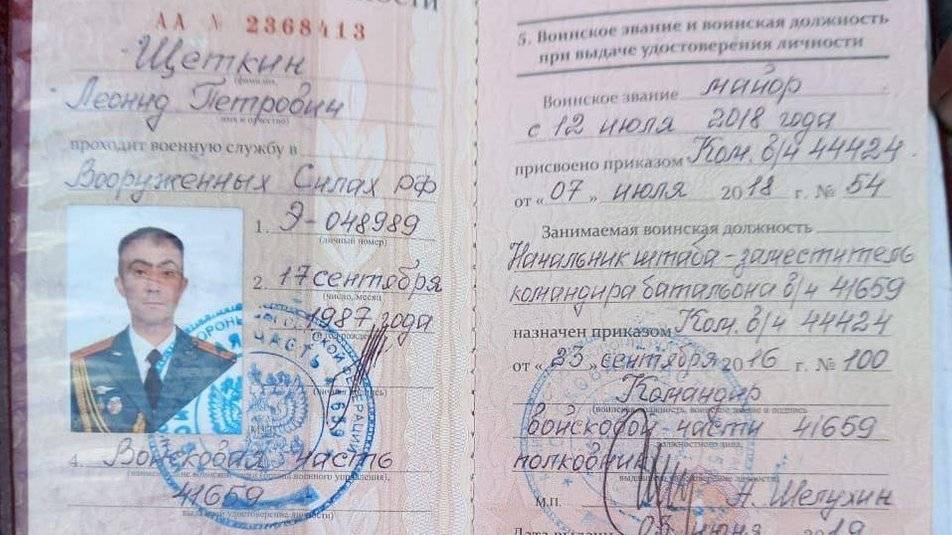 НОСТИ
АА № 2368413
Щеткин
(фамилия)
Леонид Петрович
имя и отчество)
проходит военную службу в
Вооруженных Силах РФ
1. Э-048989
(личный номер)
2. 17 сентября
(число, месяц
1987 года
4. Войсковая часть
41659
5. Воинское звание и воинская должность
при выдаче удостоверения личности
Воинское звание майор
с 12 июля 2018 года
присвоено приказом Ком. в/ч 44424
от « 07 » июля 2018 г. № 54
Занимаемая воинская должность
Начальник штаба-заместитель
командира батальона в/ч 41659
назначен приказом Ком. в/ч 44424
от « 23 » сентября 2016 г. № 100
Командир
(воинская должность, воинское звание и подпись
войсковой части 41659
должностного лица,
полковник А. Шелухин
М.П.
Дата выдачи 05 июня 2019